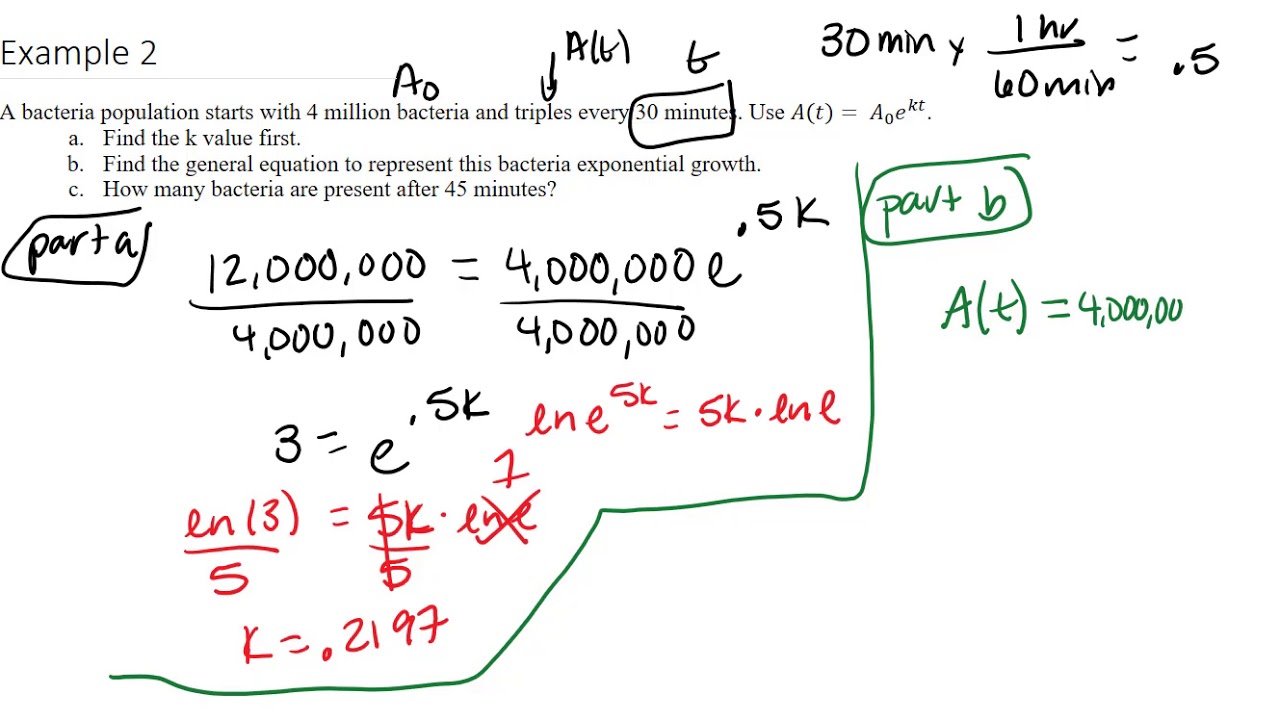 Example 2
A₀
A(t)
t
30 min x 1 hr / 60 min = .5
A bacteria population starts with 4 million bacteria and triples every 30 minutes. Use A(t) = A₀e^kt.
a. Find the k value first.
b. Find the general equation to represent this bacteria exponential growth.
c. How many bacteria are present after 45 minutes?
part a
12,000,000 / 4,000,000 = 4,000,000 e^.5K / 4,000,000
3 = e^.5K
ln e^5K = 5K · ln e
1
ln(3) / 5 = 5K / 5 · ln e
K = .2197
part b
A(t) = 4,000,00